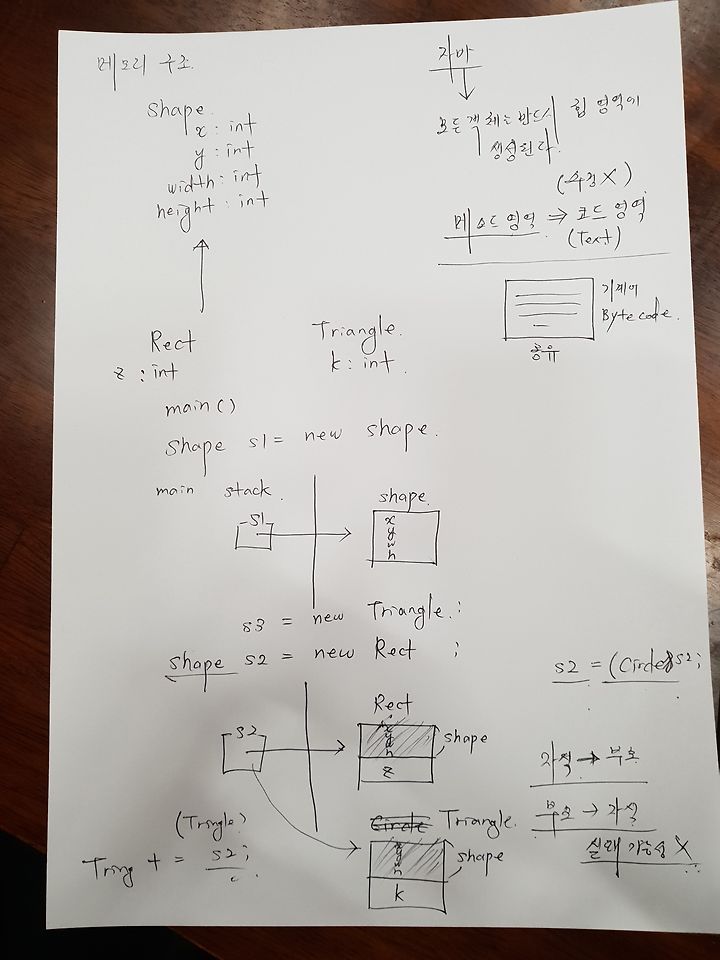 메모리 구조.
Shape
x : int
y : int
width : int
height : int
Rect
z : int
Triangle.
k : int
main()
Shape s1 = new shape.
main stack.
s1
shape.
x
y
w
h
s3 = new Triangle.;
shape s2 = new Rect ;
s2
Rect
x
y
h
z
shape
Triangle.
y
h
k
shape
(Tringle)
Tring t = s2;
자바
모든 객체는 반드시 힙 영역에
생성된다.
(수정 X)
메소드 영역 ⇒ 코드 영역
(Text)
기계어
Byte code.
공유
s2 = (Circle)s2;
자식 → 부모
부모 → 자식
실패 가능성 X